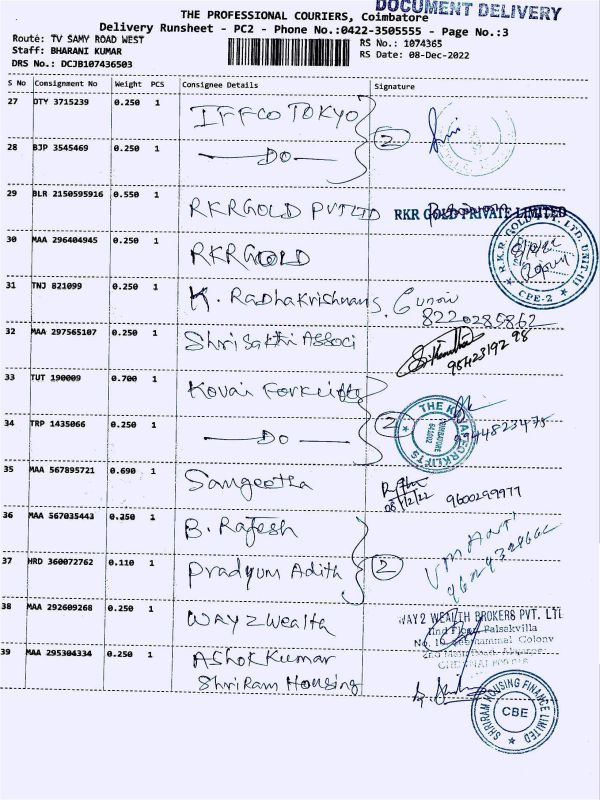 DOCUMENT DELIVERY
THE PROFESSIONAL COURIERS, Coimbatore
Delivery Runsheet - PC2 - Phone No.:0422-3505555 - Page No.:3
Route: TV SAMY ROAD WEST
Staff: BHARANI KUMAR
DRS No.: DCJB107436503
RS No.: 1074365
RS Date: 08-Dec-2022
S No Consignment No Weight PCS Consignee Details Signature
27 DTY 3715239 0.250 1 IFFCO TOKYO
2
28 BJP 3545469 0.250 1 DO
29 BLR 2150595916 0.550 1 RKRGOLD PVT LTD RKR GOLD PRIVATE LIMITED
30 MAA 296404945 0.250 1 RKRGOLD
R.K.R. GOLD PVT. LTD. UNIT-III
CBE-2
31 TNJ 821099 0.250 1 K. Radhakrishnan
8220285862
32 MAA 297565107 0.250 1 Shri Sakthi Associ
9542319298
33 TUT 190009 0.700 1 Kovai Forklifts
2
34 TRP 1435066 0.250 1 DO
9944823475
35 MAA 567895721 0.690 1 Sangeetha
08/12/22 9600299977
36 MAA 567035443 0.250 1 B. Rajesh
37 HRD 360072762 0.110 1 Pradyum Adith 2
38 MAA 292609268 0.250 1 WAY2Wealth
WAY 2 WEALTH BROKERS PVT. LTD
39 MAA 295304334 0.250 1 Ashok Kumar
Shri Ram Housing
SHRIRAM HOUSING FINANCE LIMITED
CBE